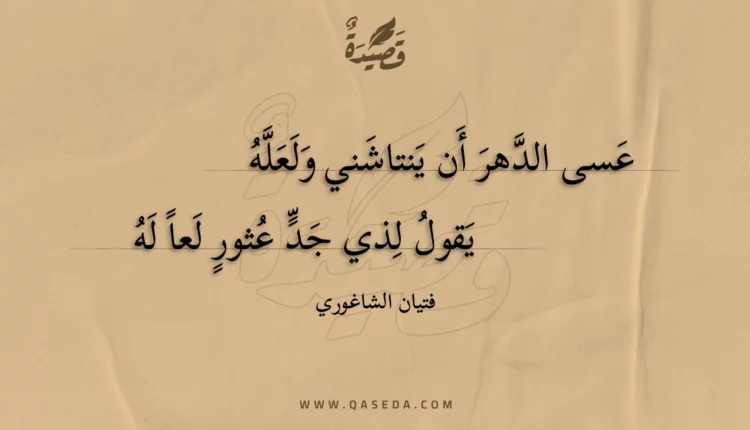 قَصِيْدَةٌ
عَسى الدَّهرَ أَن يَنتاشَني وَلَعَلَّهُ
يَقولُ لِذي جَدٍّ عُثورٍ لَعاً لَهُ
فتيان الشاغوري
WWW.QASEDA.COM